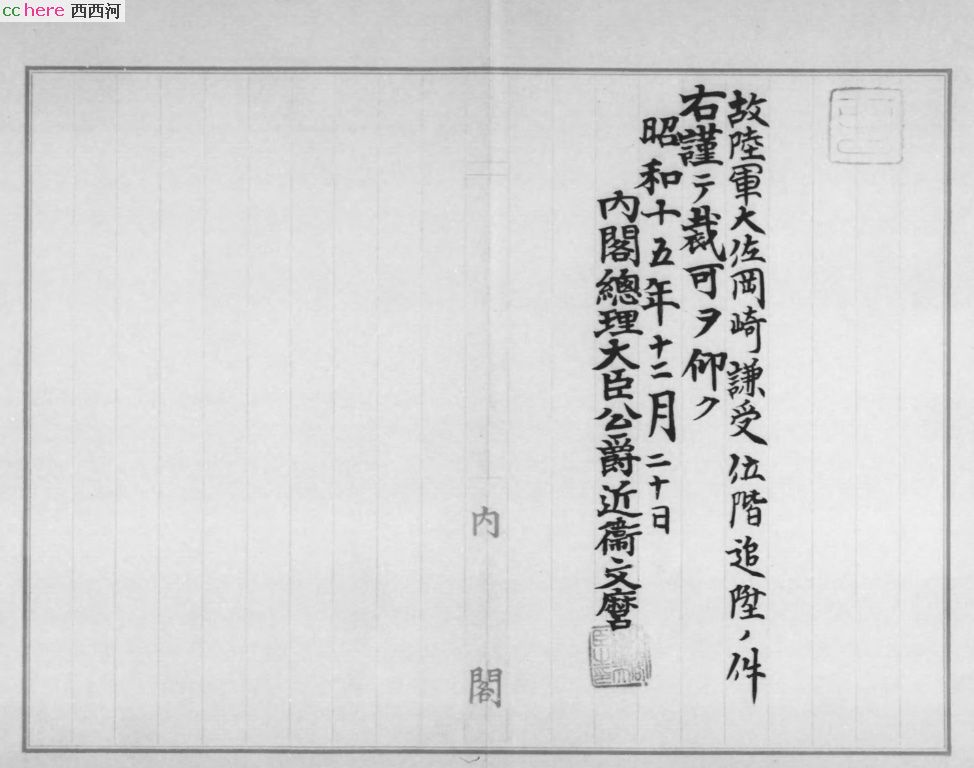 cchere 西西河
故陸軍大佐岡崎謙受位階追陞ノ件
右謹テ裁可ヲ仰ク
昭和十五年十二月二十日
內閣總理大臣公爵近衞文麿
内閣